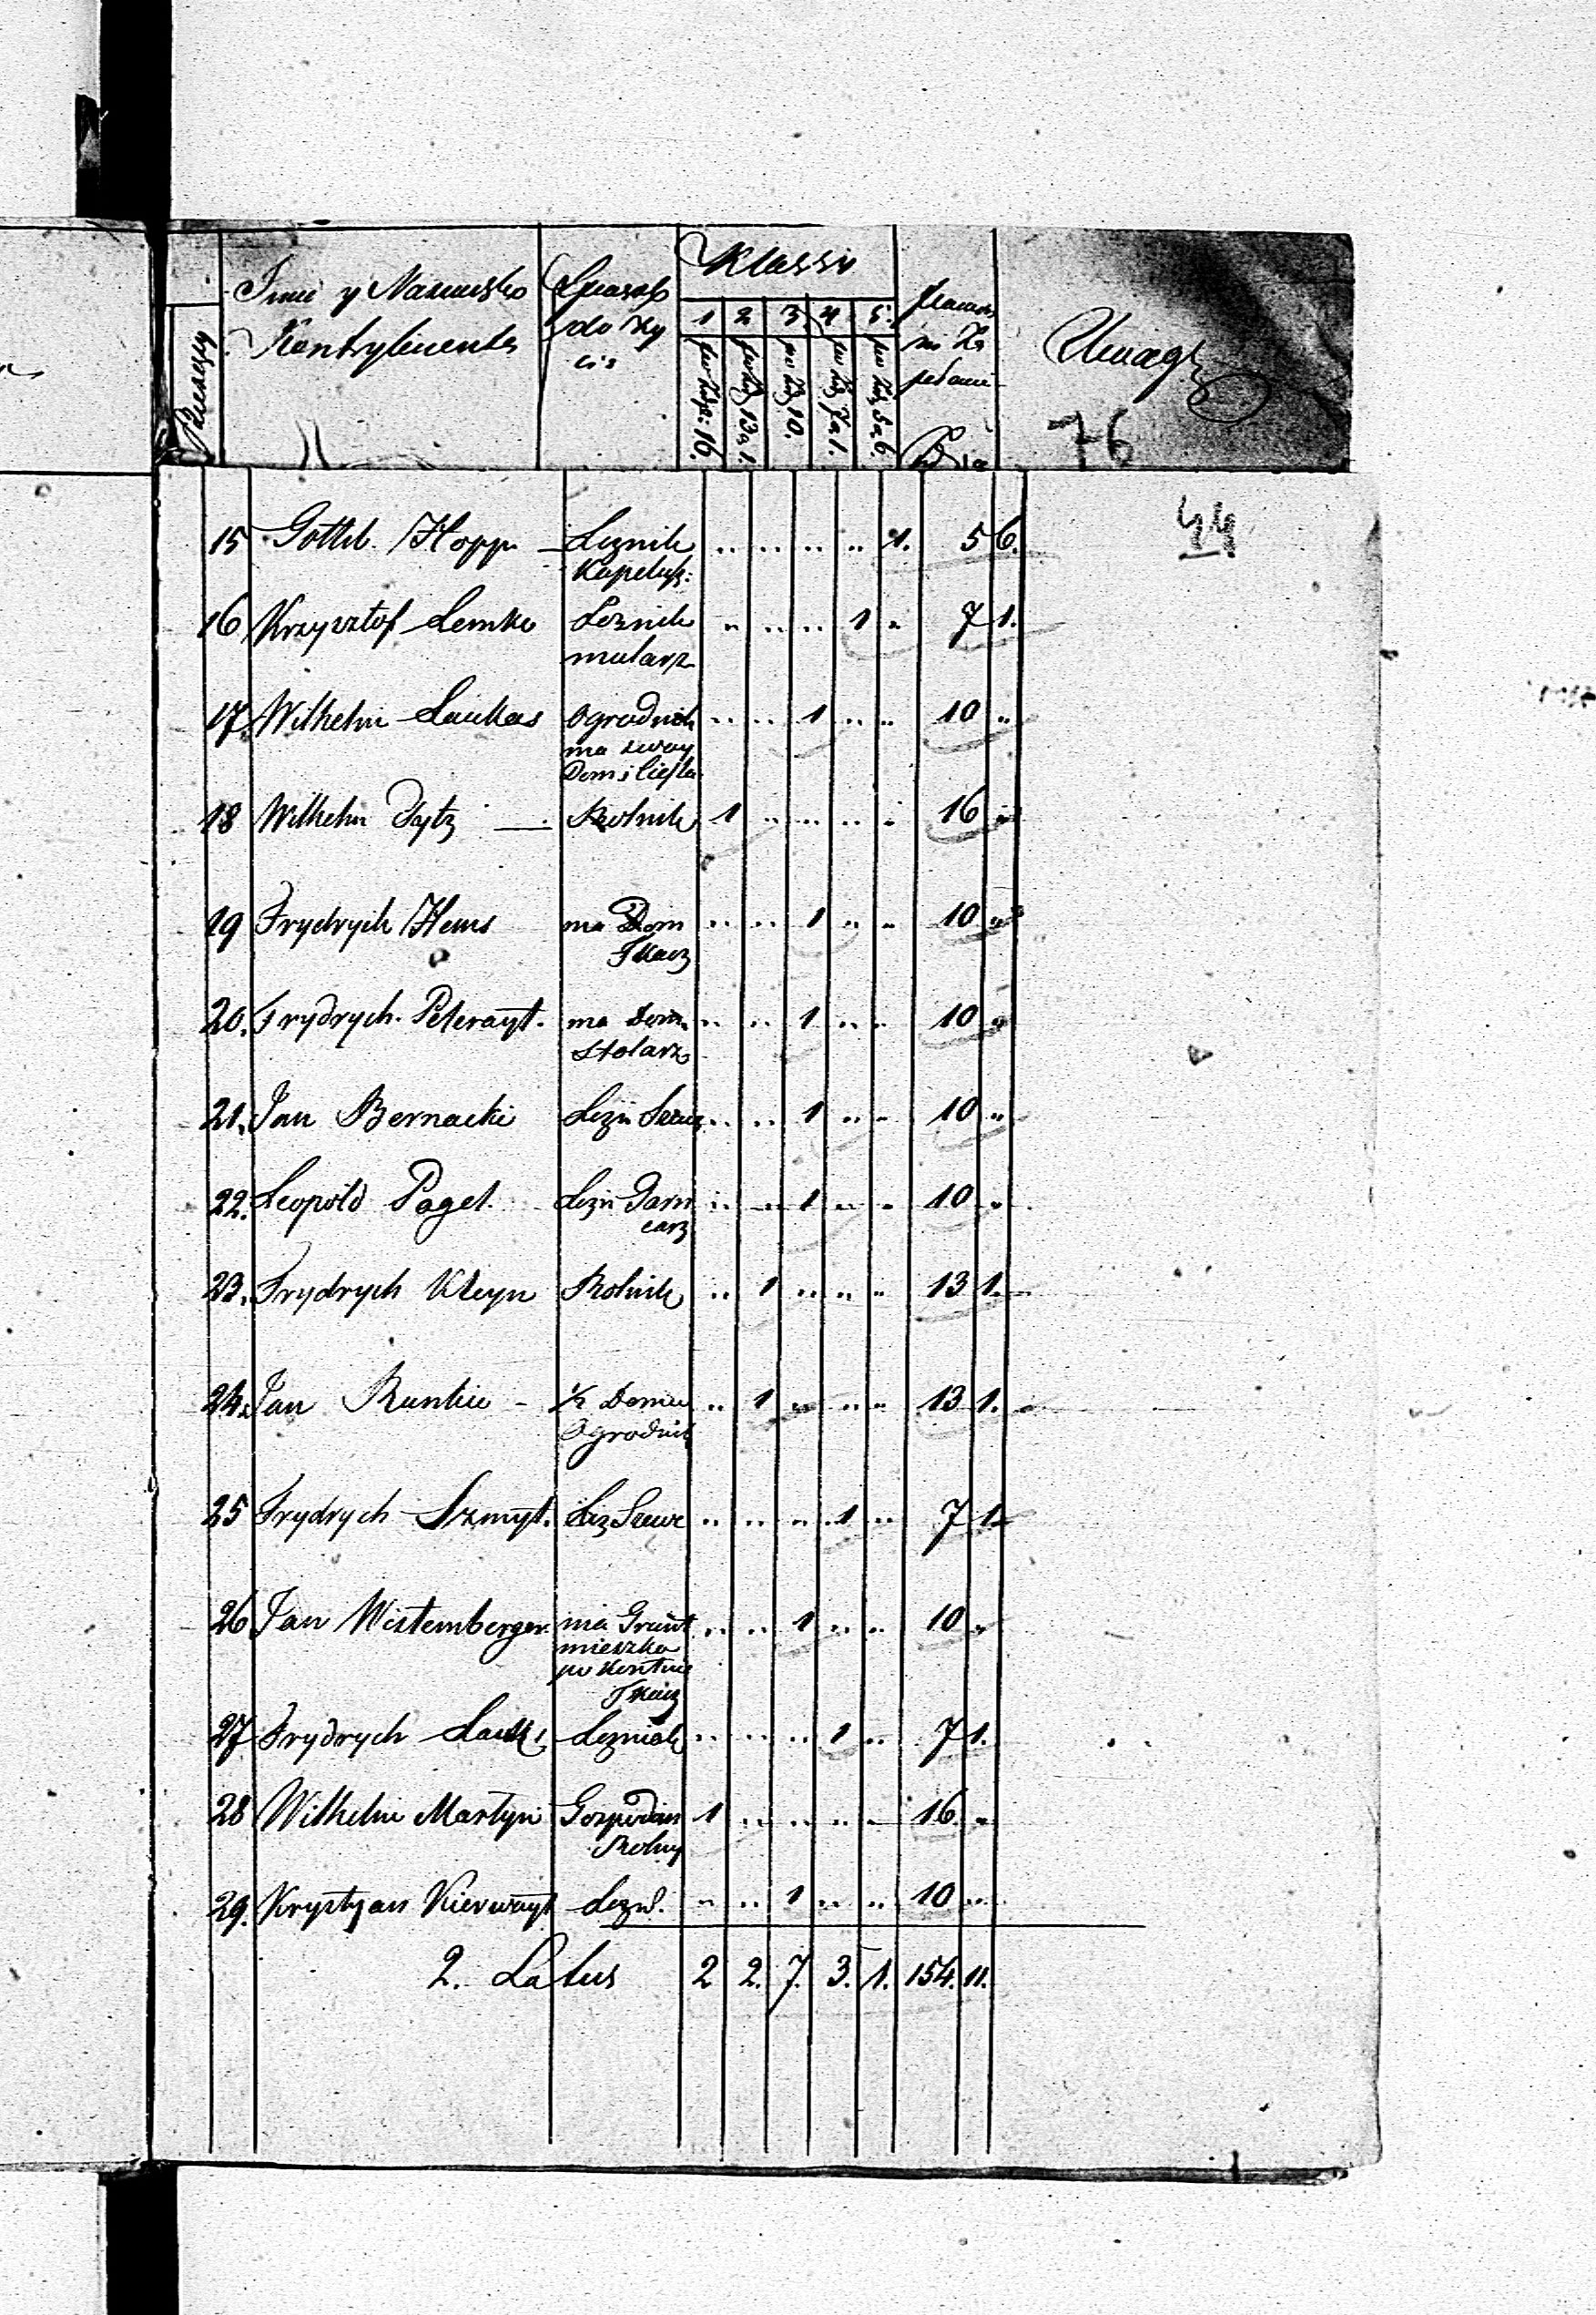 Imie y Nazwisko Kontrybuenta
Sposob do życia
Klassy
1 2 3. 4 5.
po złp: 16. po złp 13 g 1. po złp 10. po złp 7 g 1. po złp 5 g 6.
Uwagi
76
44
15 Gottl. Hopp — Leznik .. .. .. .. 1. 5 6.
Kapelusz:
16 Krzysztof Lemke Leznik .. .. .. 1 .. 7 1.
mularz
17. Wilhelm Laukas Ogrodnik .. .. 1 .. .. 10 ..
ma swoy
Dom i Ciesla
18 Wilhelm Tytz — Rolnik 1 .. .. .. .. 16 ..
19 Frydrych Hems ma Dom .. .. 1 .. .. 10 ..
Tkacz
20. Frydrych Peterayt. ma Dom .. .. 1 .. .. 10 ..
Stolarz
21. Jan Bernacki Lezn .. .. 1 .. .. 10 ..
22. Leopold Pagel Lezn Garn .. .. 1 .. .. 10 ..
carz
23. Frydrych Kleyn Rolnik .. 1 .. .. .. 13 1.
24. Jan Runkie – ½ Domu .. 1 .. .. .. 13 1.
Ogrodnik
25 Frydrych Szmyt. Lez Szewc .. .. .. 1 .. 7 1.
26 Jan Wistemberger ma Grunt .. .. 1 .. .. 10 ..
mieszka
po kontnie
Tkacz
27 Frydrych Lezniak .. .. .. 1 .. 7 1.
28 Wilhelm Martyn Gospodar 1 .. .. .. .. 16. ..
Rolny
29. Krystyan Kierwayt Lezn. .. .. 1 .. .. 10 ..
2. Latus 2 2. 7. 3. 1. 154. 11.